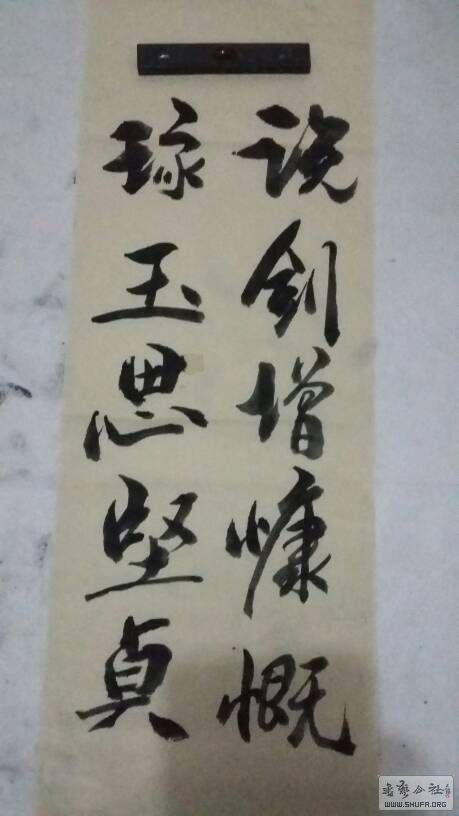 说剑增慷慨
琢玉思坚贞
書藝公社
WWW.SHUFA.ORG